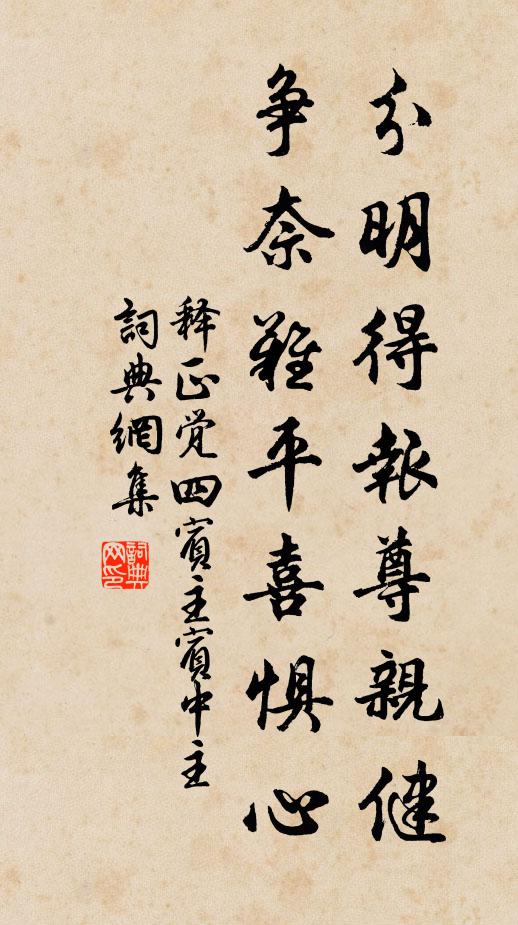 分明得報尊親健
争奈難平喜惧心
释正觉四賓主賓中主
詞典網集
詞典
网印